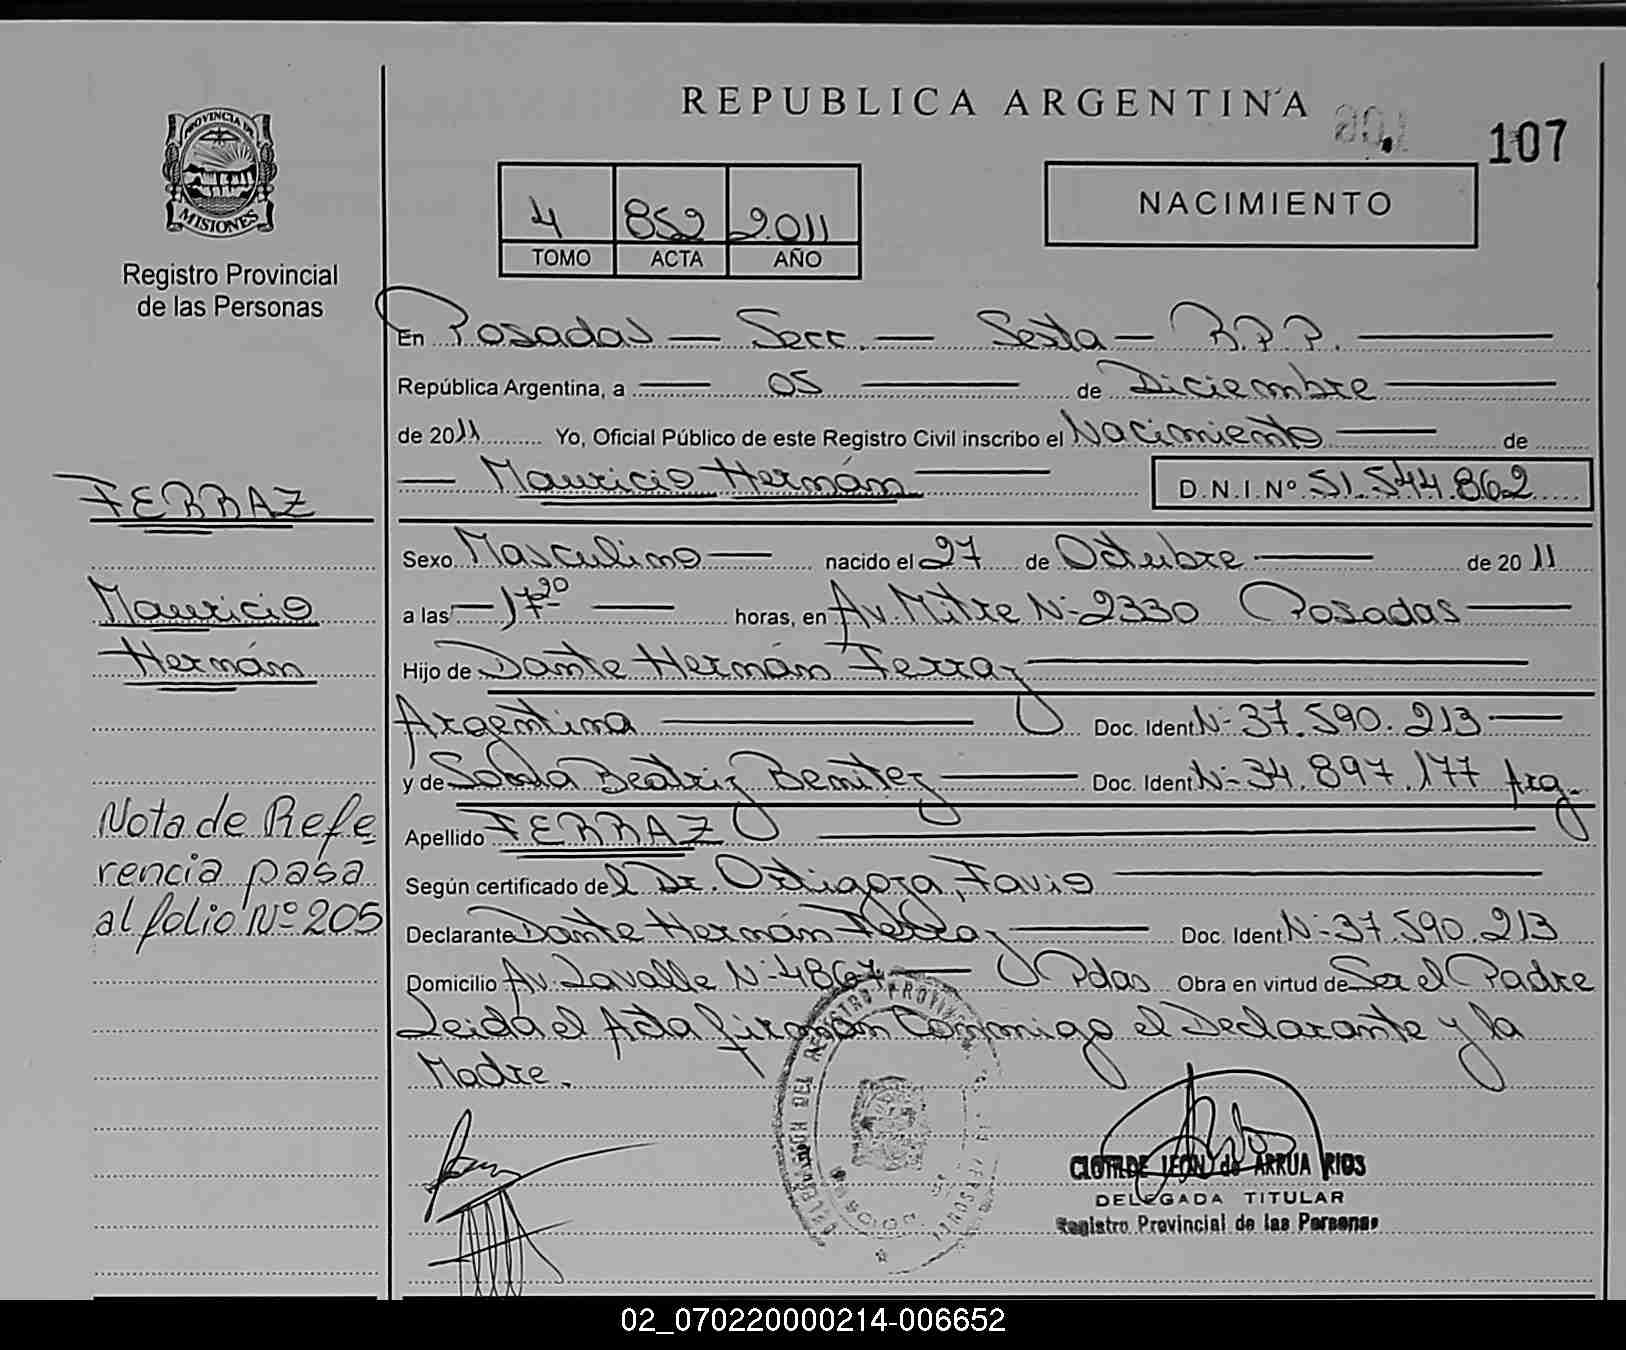 REPUBLICA ARGENTINA
107
PROVINCIA DE
MISIONES
Registro Provincial
de las Personas
4 852 2.011
TOMO ACTA AÑO
NACIMIENTO
En Posadas — Secc. — Sexta — R.P.P.
República Argentina, a — 05 — de Diciembre —
de 2011 Yo, Oficial Público de este Registro Civil inscribo el Nacimiento — de
— Mauricio Hernán — D.N.I.Nº 51.544.862
FERRAZ
Mauricio
Hernán
Sexo Masculino — nacido el 27 de Octubre — de 20 11
a las — 17 20 — horas, en Av. Mitre Nº 2330 Posadas —
Hijo de Dante Hernán Ferraz —
Argentina — Doc. Ident Nº 37.590.213 —
y de Beatriz Benitez — Doc. Ident Nº 34.897.177 Arg.
Apellido FERRAZ —
Según certificado del Dr. Favio —
Declarante Dante Hernán Ferraz — Doc. Ident Nº 37.590.213
Domicilio Av. Lavalle Nº 4867 — Pdas Obra en virtud de Ser el Padre
Leida el Acta firman Conmigo el Declarante y la
Madre.
Nota de Refe
rencia pasa
al folio Nº 205
CLOTILDE LEON de ARRUA RIOS
DELEGADA TITULAR
Registro Provincial de las Personas
02_070220000214-006652